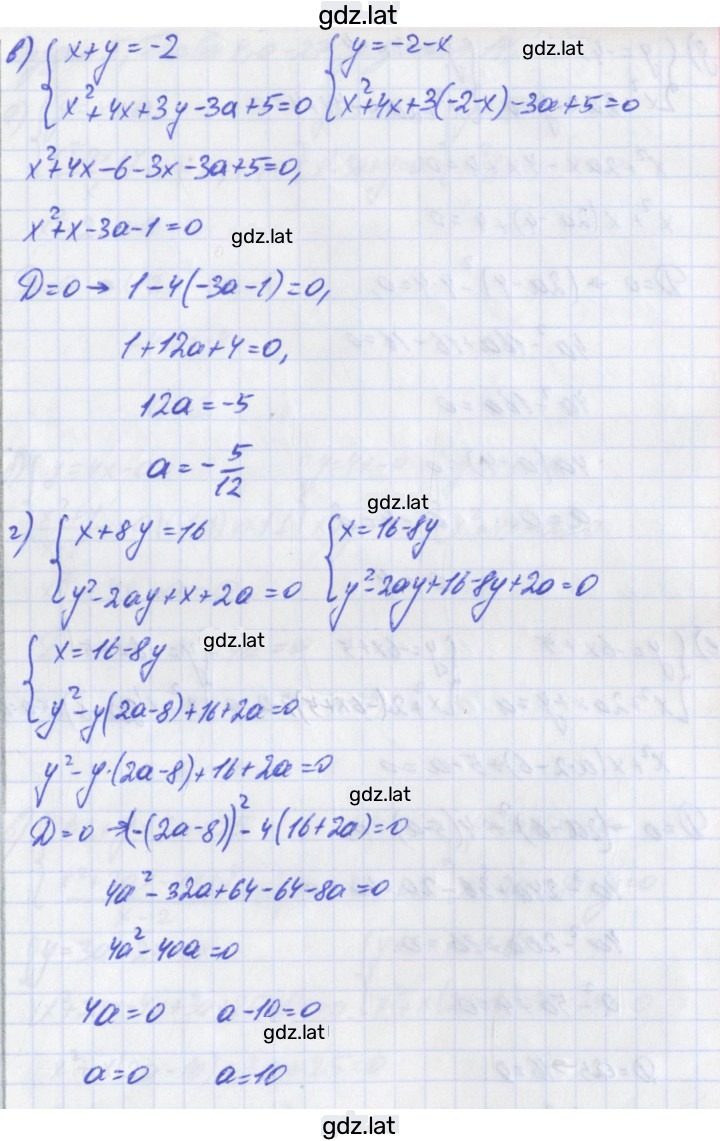 gdz.lat
в) { x+y=-2 { y=-2-x gdz.lat
x²+4x+3y-3a+5=0 x²+4x+3(-2-x)-3a+5=0
x²+4x-6-3x-3a+5=0,
x²+x-3a-1=0 gdz.lat
D=0 → 1-4(-3a-1)=0,
1+12a+4=0,
12a=-5
a=-5/12
gdz.lat
г) { x+8y=16 { x=16-8y
y²-2ay+x+2a=0 y²-2ay+16-8y+2a=0
{ x=16-8y gdz.lat
y²-y(2a-8)+16+2a=0
y²-y·(2a-8)+16+2a=0
gdz.lat
D=0 → (-(2a-8))²-4(16+2a)=0
4a²-32a+64-64-8a=0
4a²-40a=0
4a=0 a-10=0
gdz.lat
a=0 a=10
gdz.lat